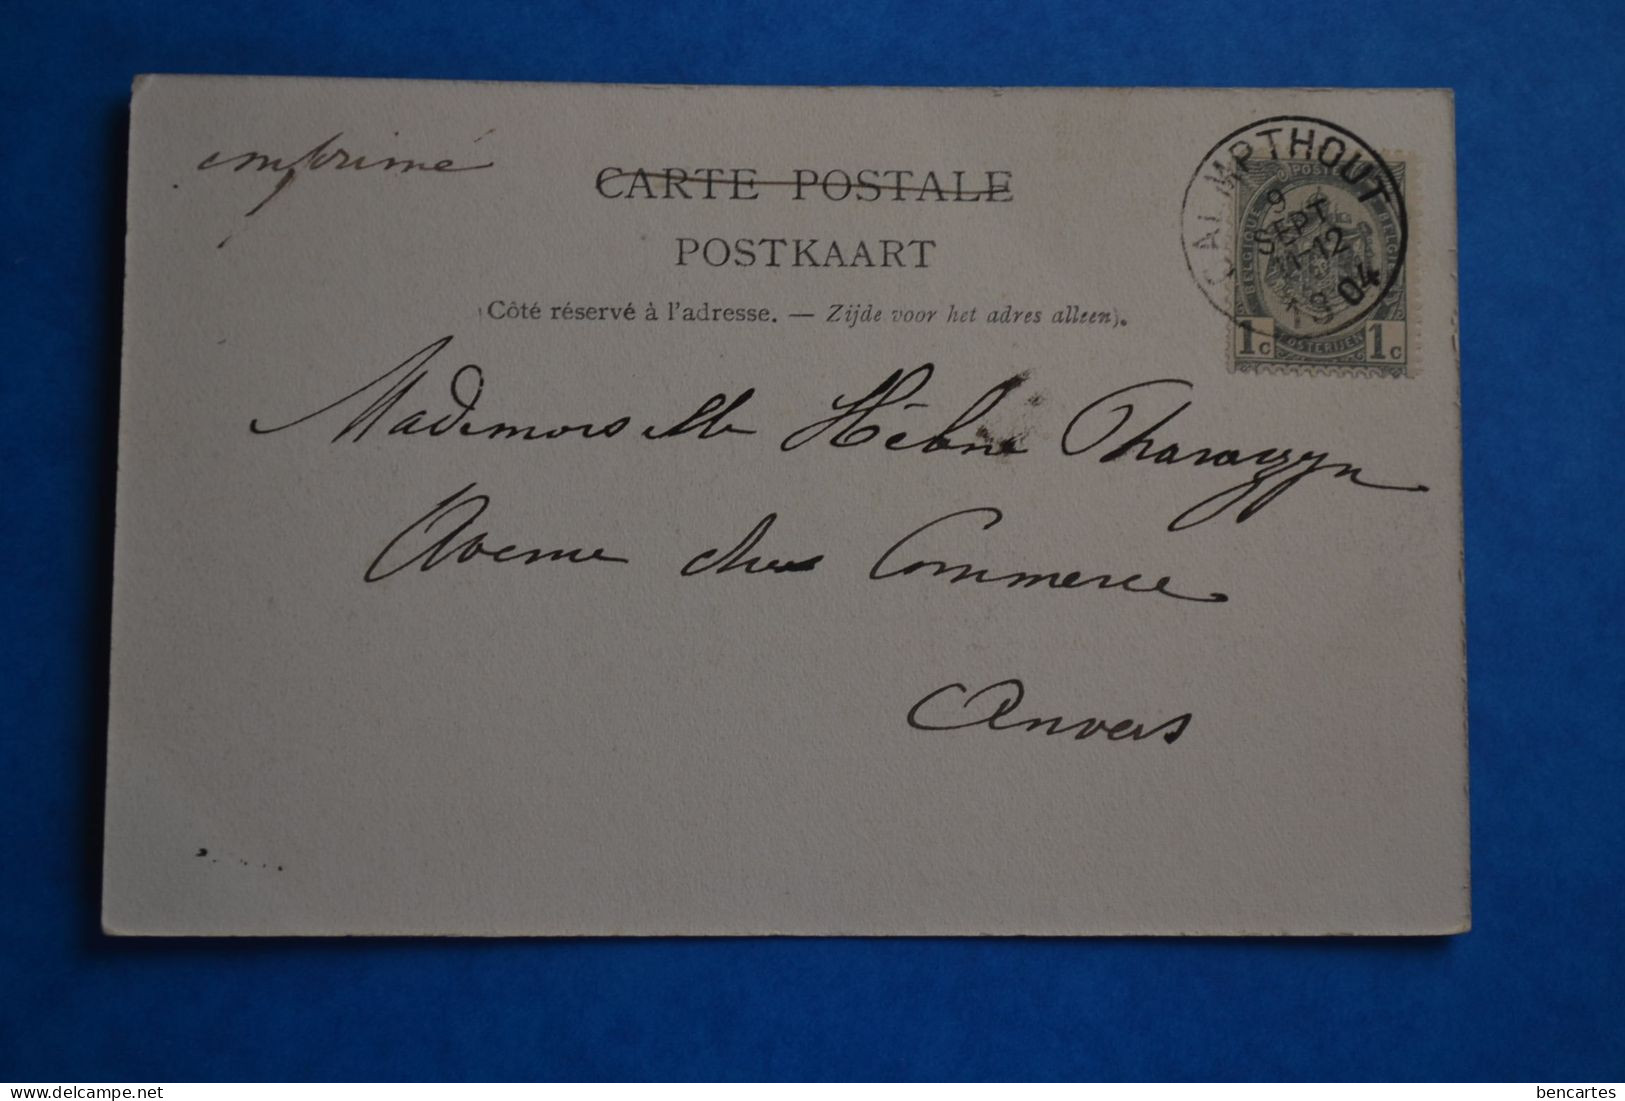 imprimé
CARTE POSTALE
POSTKAART
(Côté réservé à l'adresse. — Zijde voor het adres alleen).
CALMPTHOUT
9
SEPT
11-12
1904
BELGIQUE
POSTERIJEN
1c 1c
Mademoiselle Hélène
Avenue du Commerce
Anvers
bencartes